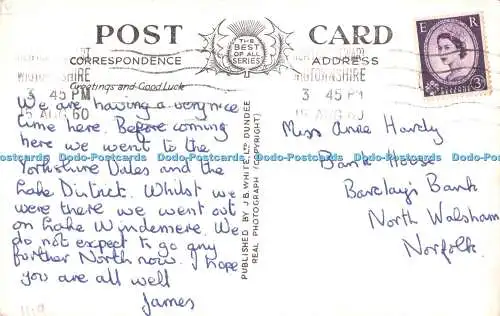 POST CARD
THE
BEST
OF ALL
SERIES
CORRESPONDENCE
ADDRESS
Greetings and Good Luck
WIGTOWNSHIRE
3 45 PM
15 AUG 60
WIGTOWNSHIRE
3 45 PM
15 AUG 60
E R
3D
We are having a very nice
time here. Before coming
here we went to the
Yorkshire Dales and the
Lake District. Whilst we
were there we went out
on Lake Windemere. We
do not expect to go any
further North now. I hope
you are all well
James
PUBLISHED BY J.B. WHITE, LTD. DUNDEE
REAL PHOTOGRAPH (COPYRIGHT)
Miss Anne Hardy
Bank House
Barclay's Bank
North Walsham
Norfolk.
Dodo-Postcards Dodo-Postcards Dodo-Postcards Dodo-Postcards Dodo-Postcards Dodo-Postcards